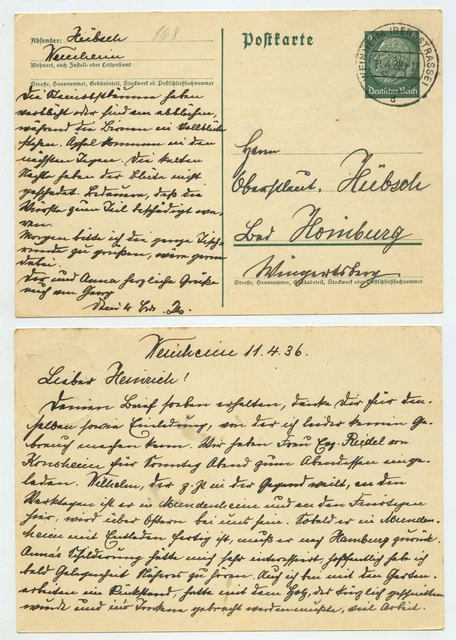 Absender: Hübsch
Weinheim
Wohnort, auch Zustell- oder Leitpostamt
Straße, Hausnummer, Gebäudeteil, Stockwerk od. Postschließfachnummer
168
Postkarte
Deutsches Reich
Herrn
Oberstleut. Hübsch
Bad Homburg
Wingertsberg
Straße, Hausnummer, Gebäudeteil, Stockwerk oder Postschließfachnummer
Die Steinobstbäume haben
verblüht oder sind am abblühen,
während die Birnen in Vollblüte
stehen. Äpfel kommen in den
nächsten Tagen. Die kalten
Nächte haben der Blüte nicht
geschadet. Bedauern, daß die
Würste zum Teil beschädigt wa-
ren.
Morgen bitte ich die ganze Tisch-
runde zu grüßen, wäre gerne
dabei.
Dir und Anna herzliche Grüße
auch von Georg
Dein
Weinheim 11.4.36.
Lieber Heinrich!
Deinen Brief soeben erhalten, danke Dir für den-
selben sowie Einladung, von der ich leider keinen Ge-
brauch machen kann. Wir haben Frau Riedel von
für Sonntag Abend zum Abendessen einge-
laden. Wilhelm, der z. Zt in der Gegend weilt, an den
Werktagen ist er in Mundenheim und an den Feiertagen
hier, wird über Ostern bei uns sein. Sobald er in Munden-
heim mit Entladen fertig ist, muß er nach Hamburg zurück.
Anna's Schilderung hatte mich sehr interessiert, hoffentlich habe ich
bald Gelegenheit Näheres zu hören. Auch ich bin mit den Garten-
arbeiten im Rückstand, hatte mit dem Holz, das kürzlich geschnitten
wurde und ins Trockene gebracht werden mußte, viel Arbeit.